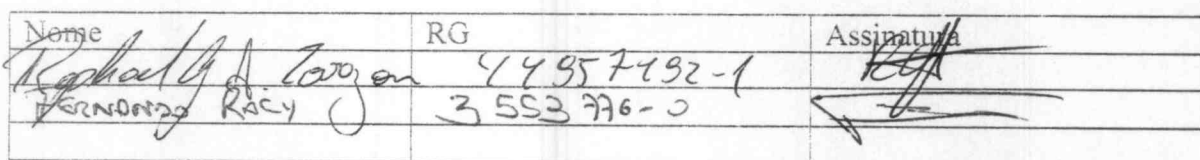 Nome RG Assinatura
Raphael G A 44957492-1
FERNANDO RACY 3553776-0